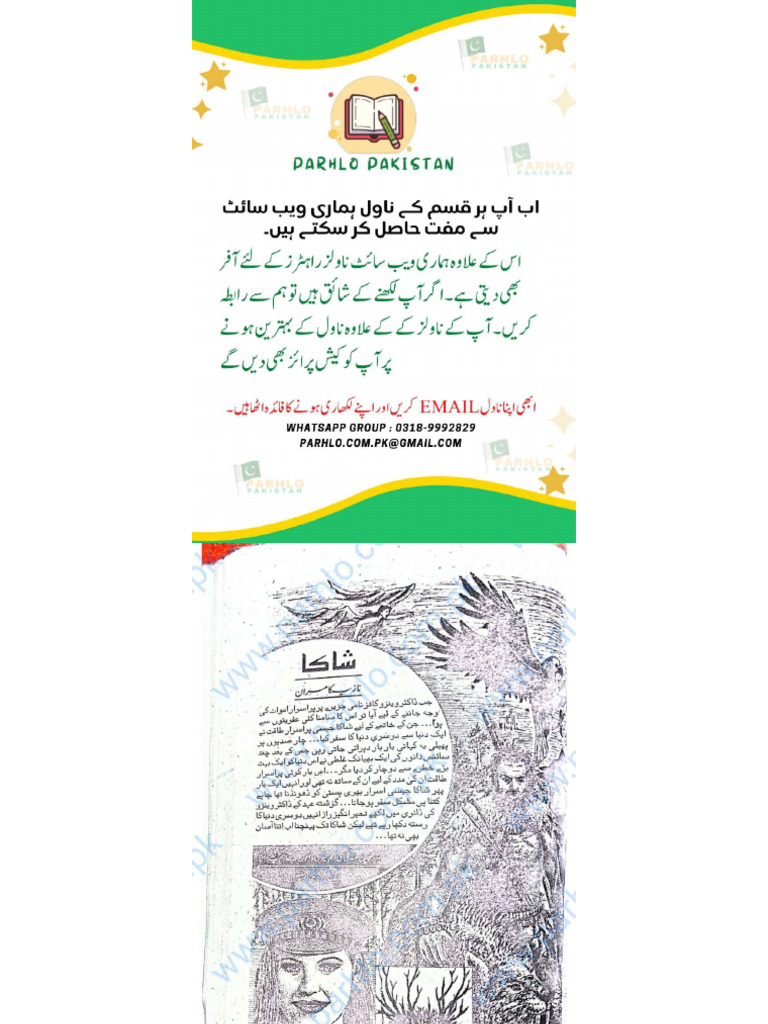 PARHLO PAKISTAN
PARHLO PAKISTAN
PARHLO PAKISTAN
PARHLO PAKISTAN
اب آپ ہر قسم کے ناول ہماری ویب سائٹ
سے مفت حاصل کر سکتے ہیں۔
اس کے علاوہ ہماری ویب سائٹ ناولز راہٹرز کے لئے آفر
بھی دیتی ہے۔ اگر آپ لکھنے کے شائق ہیں تو ہم سے رابطہ
کریں۔ آپ کے ناولز کے کے علاوہ ناول کے بہترین ہونے
پر آپ کو کیش پرائز بھی دیں گے
ابھی اپنا ناول EMAIL کریں اور اپنے لکھاری ہونے کا فائدہ اٹھاہیں۔
WHATSAPP GROUP : 0318-9992829
PARHLO.COM.PK@GMAIL.COM
PARHLO PAKISTAN
PARHLO PAKISTAN
شاکا
نازیہ کامران
جب ڈاکٹر وینزو کافز نامی جزیرے پر پراسرار اموات کی
وجہ جاننے کے لیے آیا تو اس کا سامنا کئی عفریتوں سے
ہوا... جن کے خاتمے کے لیے شاکا جیسی پراسرار طاقت نے
ایک دنیا سے دوسری دنیا کا سفر کیا... چار صدیوں پر
پھیلی یہ کہانی بار بار دہرائی جاتی رہی جس کے بعد چند
سائنس دانوں کی ایک بھیانک غلطی نے اس دنیا کو ایک بہت
بڑے خطرے سے دوچار کر دیا مگر... اس بار کوئی پراسرار
طاقت ان کی مدد کے لیے ان کے ساتھ نہ تھی اور انہیں ایک بار
پھر شاکا جیسی اسرار بھری ہستی کو ڈھونڈنا تھا چاہے
کتنا ہی مشکل سفر ہوجاتا... گزشتہ عہد کے ڈاکٹر وینزو
کی ڈائری میں لکھے تحیر انگیز راز انہیں دوسری دنیا کا
رستہ دکھا رہے تھے لیکن شاکا تک پہنچنا اب اتنا آسان
بھی نہ تھا...
www.parhlo.com.pk